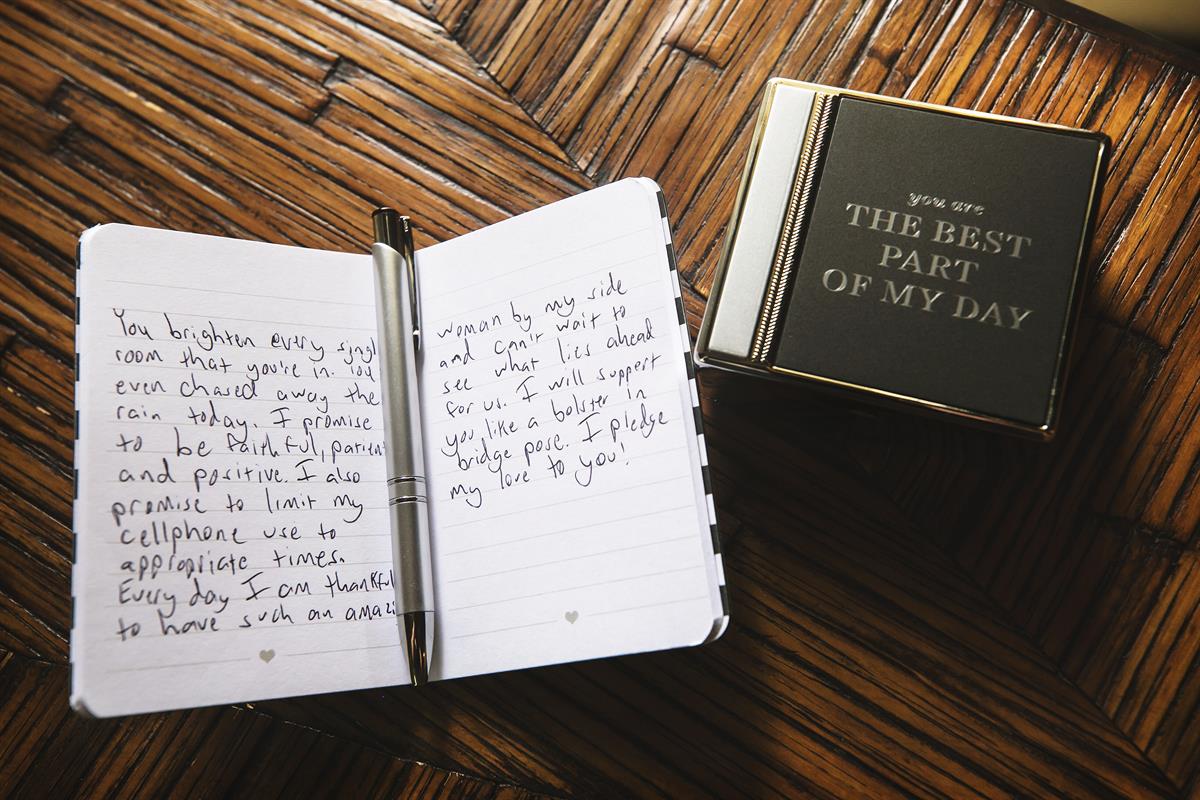 You brighten every singl
room that you're in. You
even chased away the
rain today. I promise
to be faithful, patient
and positive. I also
promise to limit my
cellphone use to
appropriate times.
Every day I am thankful
to have such an amazi
woman by my side
and can't wait to
see what lies ahead
for us. I will support
you like a bolster in
bridge pose. I pledge
my love to you!
you are
THE BEST
PART
OF MY DAY